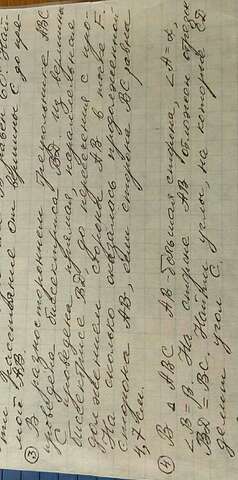 ти расстояние от вершины С до пря-
мой АВ
③ В разностороннем треугольнике АВС
проведена биссектриса BD. Из вершины
С проведена прямая параллельная
биссектрисе BD до пересечения с про-
должением стороны АВ в точке F.
На сколько оказалась продолженной
сторона АВ, если сторона ВС равна
4,7 км.
④ В △ АВС АВ большая сторона, ∠A = α,
∠B = β. На стороне АВ отложен отрезок
BD = BC. Найти углы, на которые CD
делит угол С.